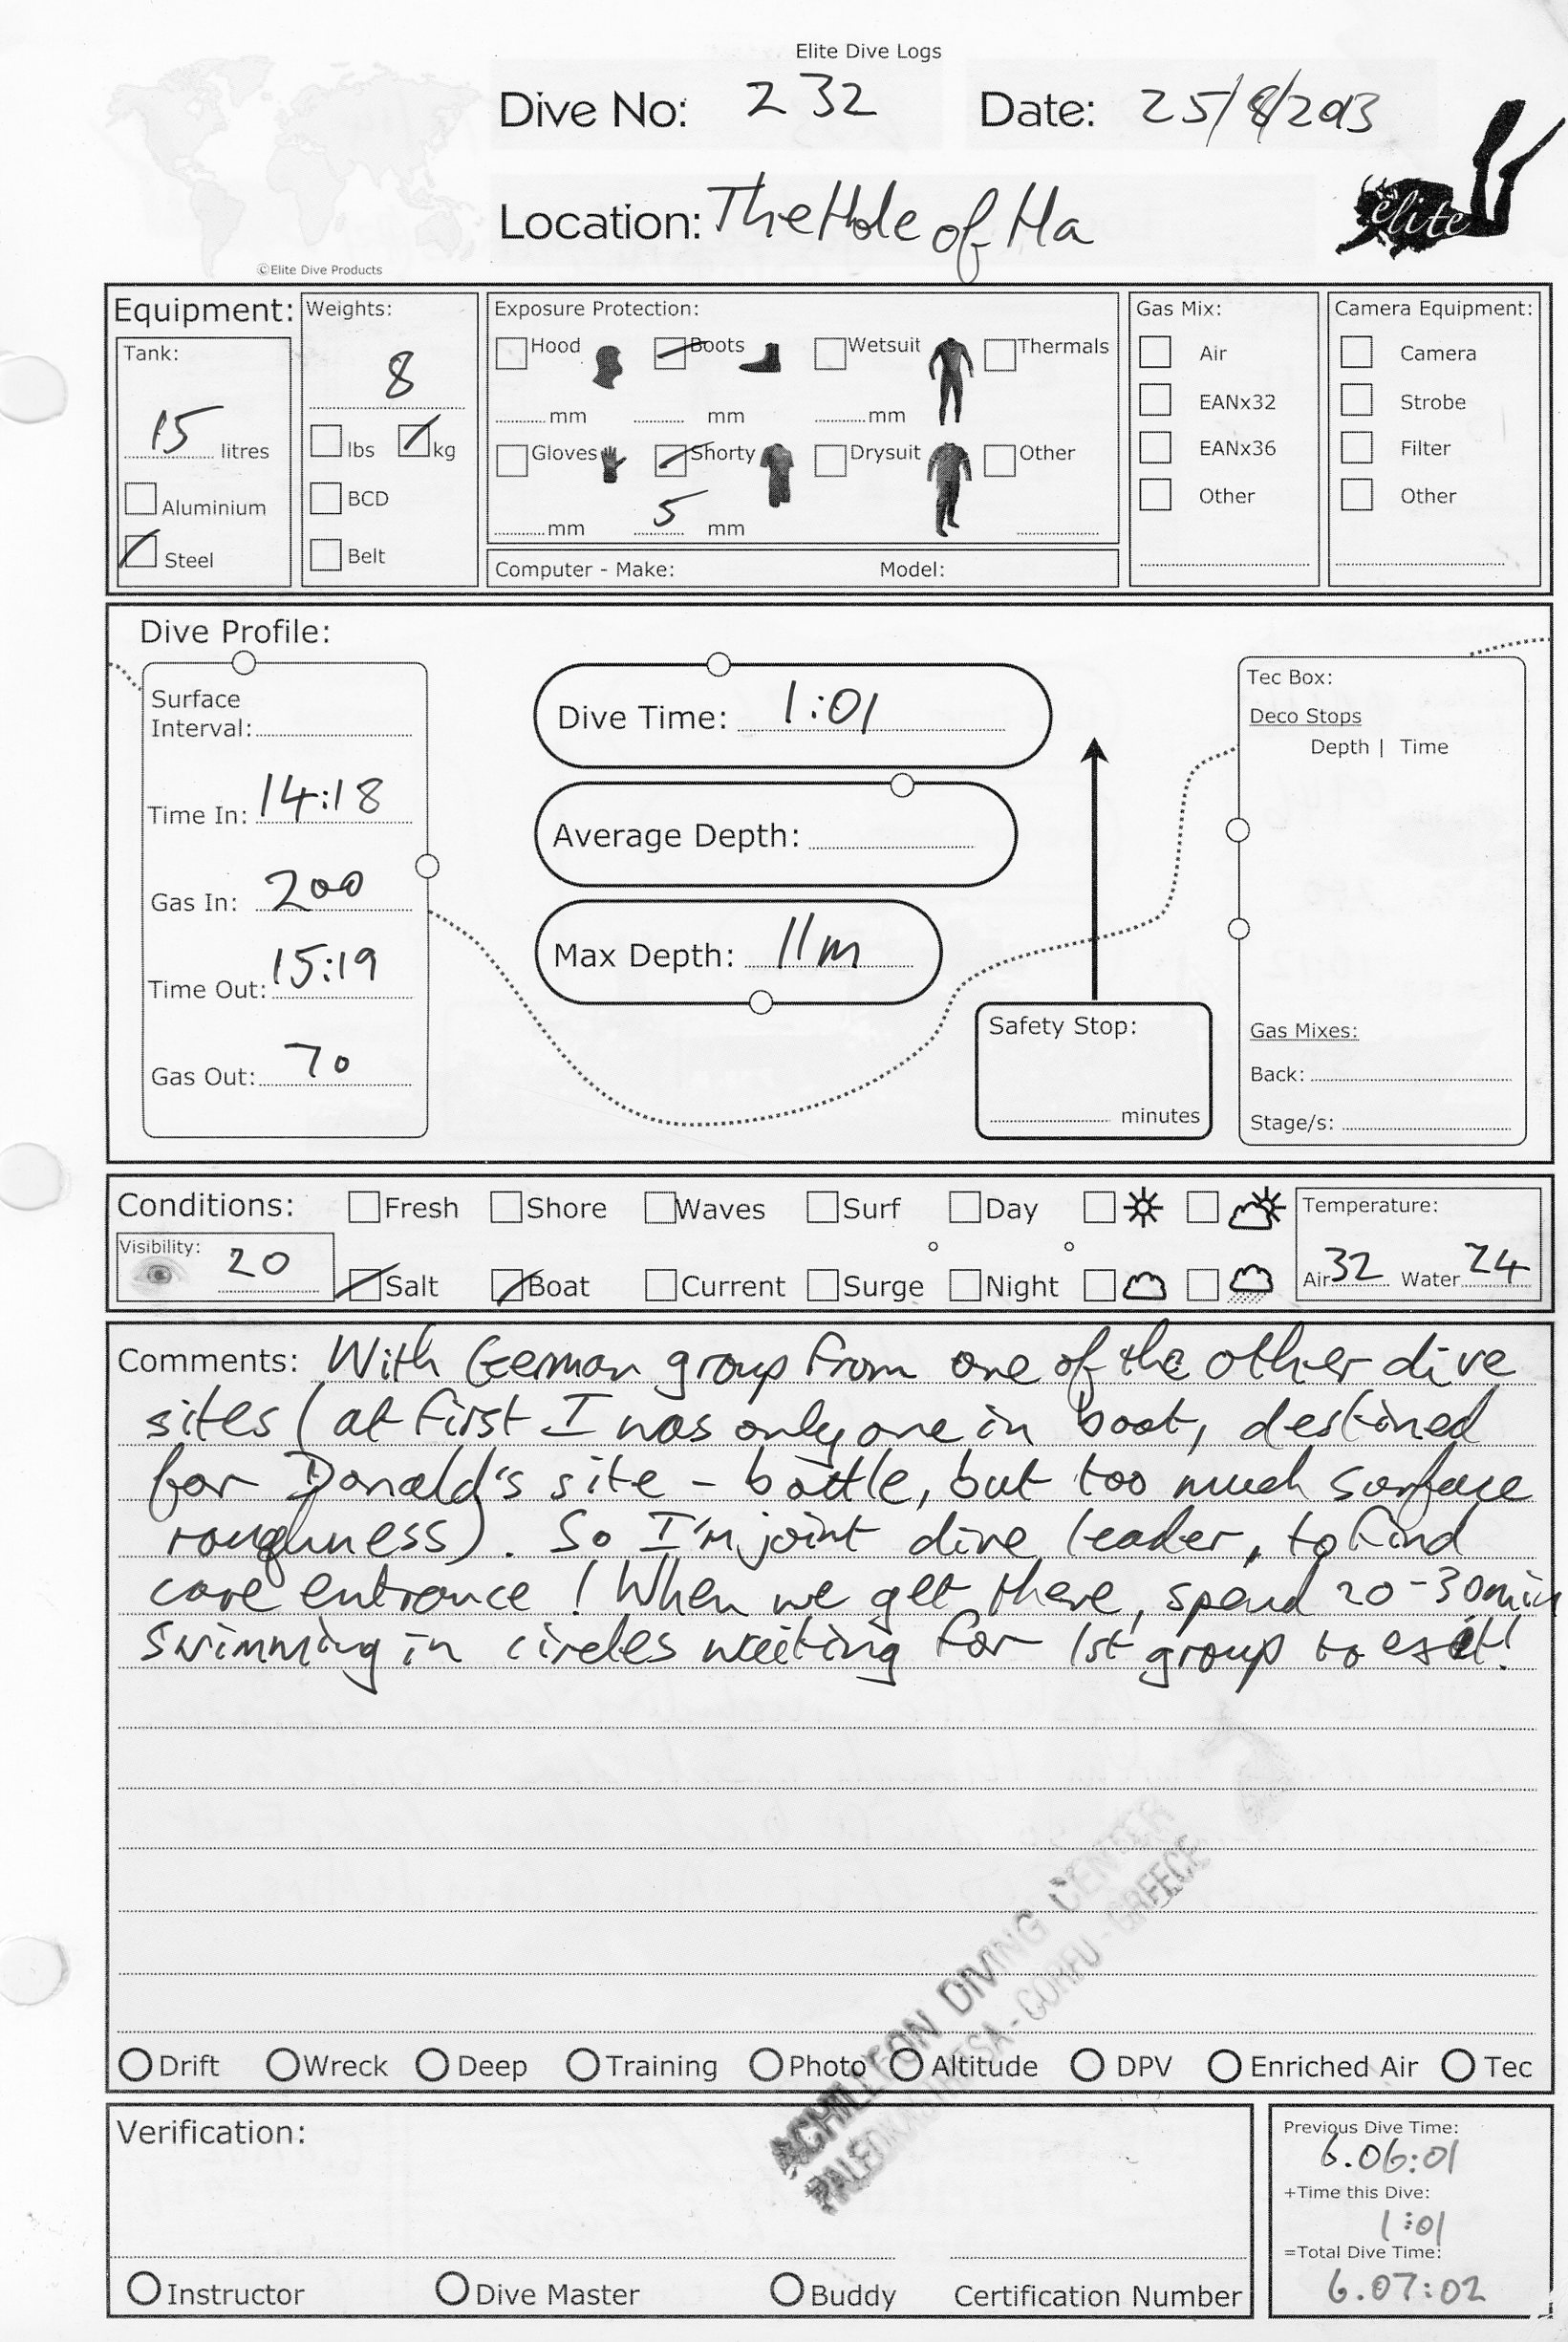 Elite Dive Logs
Dive No: 232 Date: 25/8/2013
Location: The Hole of Ha
elite
©Elite Dive Products
Equipment:
Tank:
15 litres
Aluminium
Steel
Weights:
8
lbs kg
BCD
Belt
Exposure Protection:
Hood Boots Wetsuit Thermals
mm mm mm
Gloves Shorty Drysuit Other
mm 5 mm
Computer - Make: Model:
Gas Mix:
Air
EANx32
EANx36
Other
Camera Equipment:
Camera
Strobe
Filter
Other
Dive Profile:
Surface
Interval:
Time In: 14:18
Gas In: 200
Time Out: 15:19
Gas Out: 70
Dive Time: 1:01
Average Depth:
Max Depth: 11m
Safety Stop:
minutes
Tec Box:
Deco Stops
Depth | Time
Gas Mixes:
Back:
Stage/s:
Conditions: Fresh Shore Waves Surf Day
Visibility: 20
Salt Boat Current Surge Night
Temperature:
Air 32 Water 24
Comments: With German group from one of the other dive
sites (at first I was only one in boat, destined
for Donald's site - bottle, but too much surface
roughness). So I'm joint dive leader, to find
cave entrance! When we get there, spend 20-30min
swimming in circles waiting for 1st group to exit!
ACHILLEON DIVING CENTER
PALEOKASTRITSA - CORFU - GREECE
Drift Wreck Deep Training Photo Altitude DPV Enriched Air Tec
Verification:
Instructor Dive Master Buddy Certification Number
Previous Dive Time:
6.06:01
+Time this Dive:
1:01
=Total Dive Time:
6.07:02